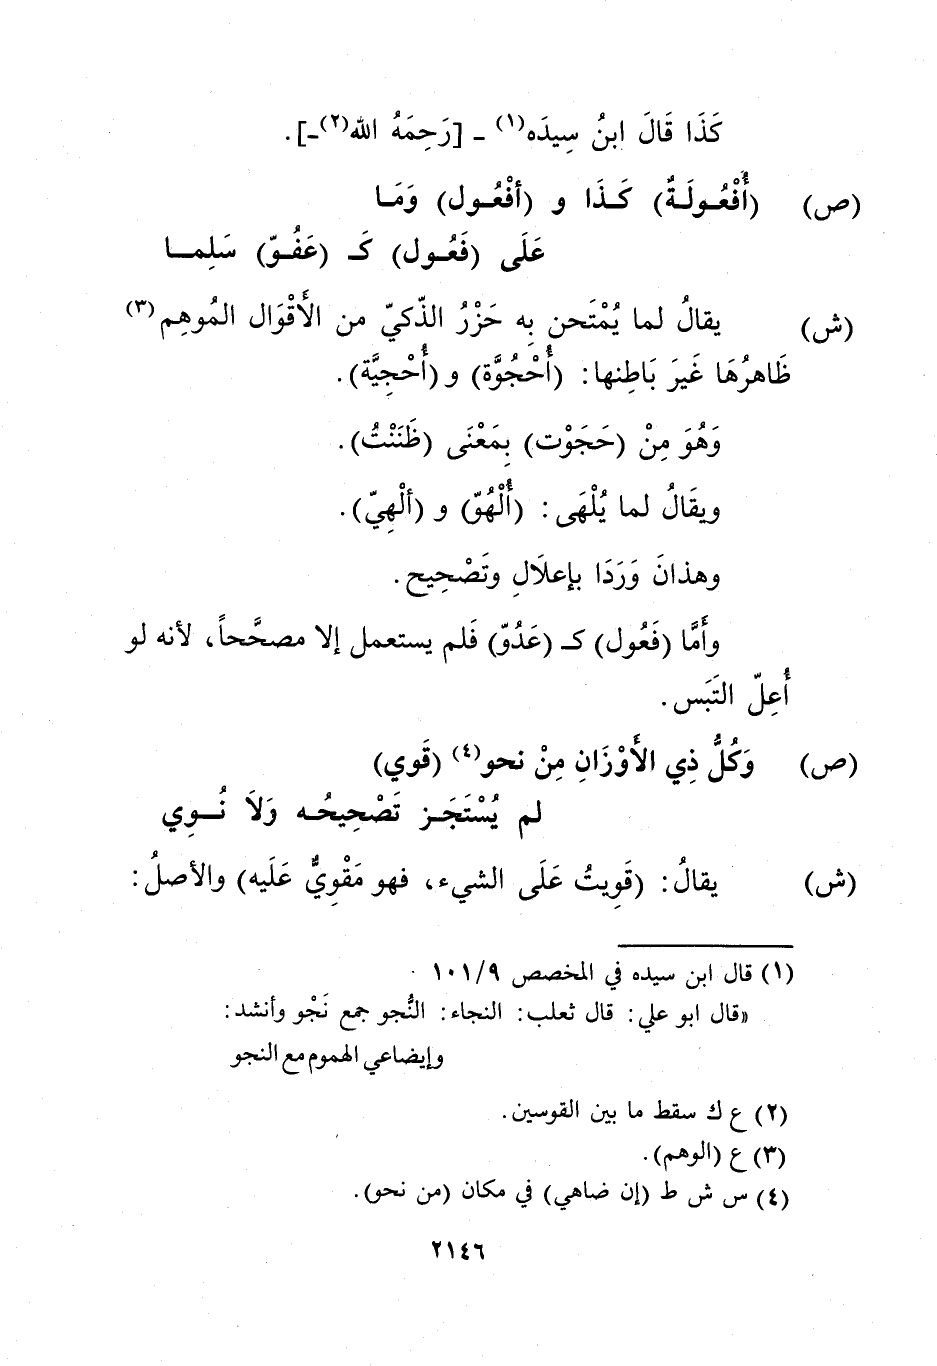 كَذَا قَالَ ابنُ سِيدَه(١) ـ [رَحِمَهُ الله(٢)ـ].
(ص) (أُفْعُـولَـةٌ) كَـذَا و (أفْعُـول) وَمَـا
عَلَى (فَعُـول) كَـ (عَفُـوّ) سَلِمـا
(ش) يقالُ لما يُمْتَحن بِه حَزْرُ الذّكيّ من الأَقْوَال المُوهِم(٣)
ظَاهرُهَا غَيرَ بَاطِنها: (أُحْجُوَّة) و (أُحْجِيَّة).
وَهُوَ مِنْ (حَجَوْت) بِمَعْنَى (ظَنَنْتُ).
ويقَالُ لما يُلْهَى: (أُلْهُوّ) و (ألْهِيّ).
وهذانَ وَرَدَا بإعلَالِ وتَصْحِيح.
وأَمَّا (فَعُول) كـ (عَدُوّ) فَلم يستعمل إلا مصحَّحاً، لأنه لو
أُعِلّ التَبَس.
(ص) وَكُلُّ ذِي الأَوْزَانِ مِنْ نحو(٤) (قَوي)
لم يُسْتَجَـز تَصْحِيحُـه وَلَا نُـوِي
(ش) يقالُ: (قَوِيتُ عَلَى الشيء، فهو مَقْوِيٌّ عَلَيه) والأصلُ:
(١) قال ابن سيده في المخصص ١٠١/٩
«قال ابو علي: قال ثعلب: النجاء: النُّجو جمع نَجْو وأنشد:
وإيضاعي الهموم مع النجو
(٢) ع ك سقط ما بين القوسين.
(٣) ع (الوهم).
(٤) س ش ط (إن ضاهي) في مكان (من نحو).
٢١٤٦